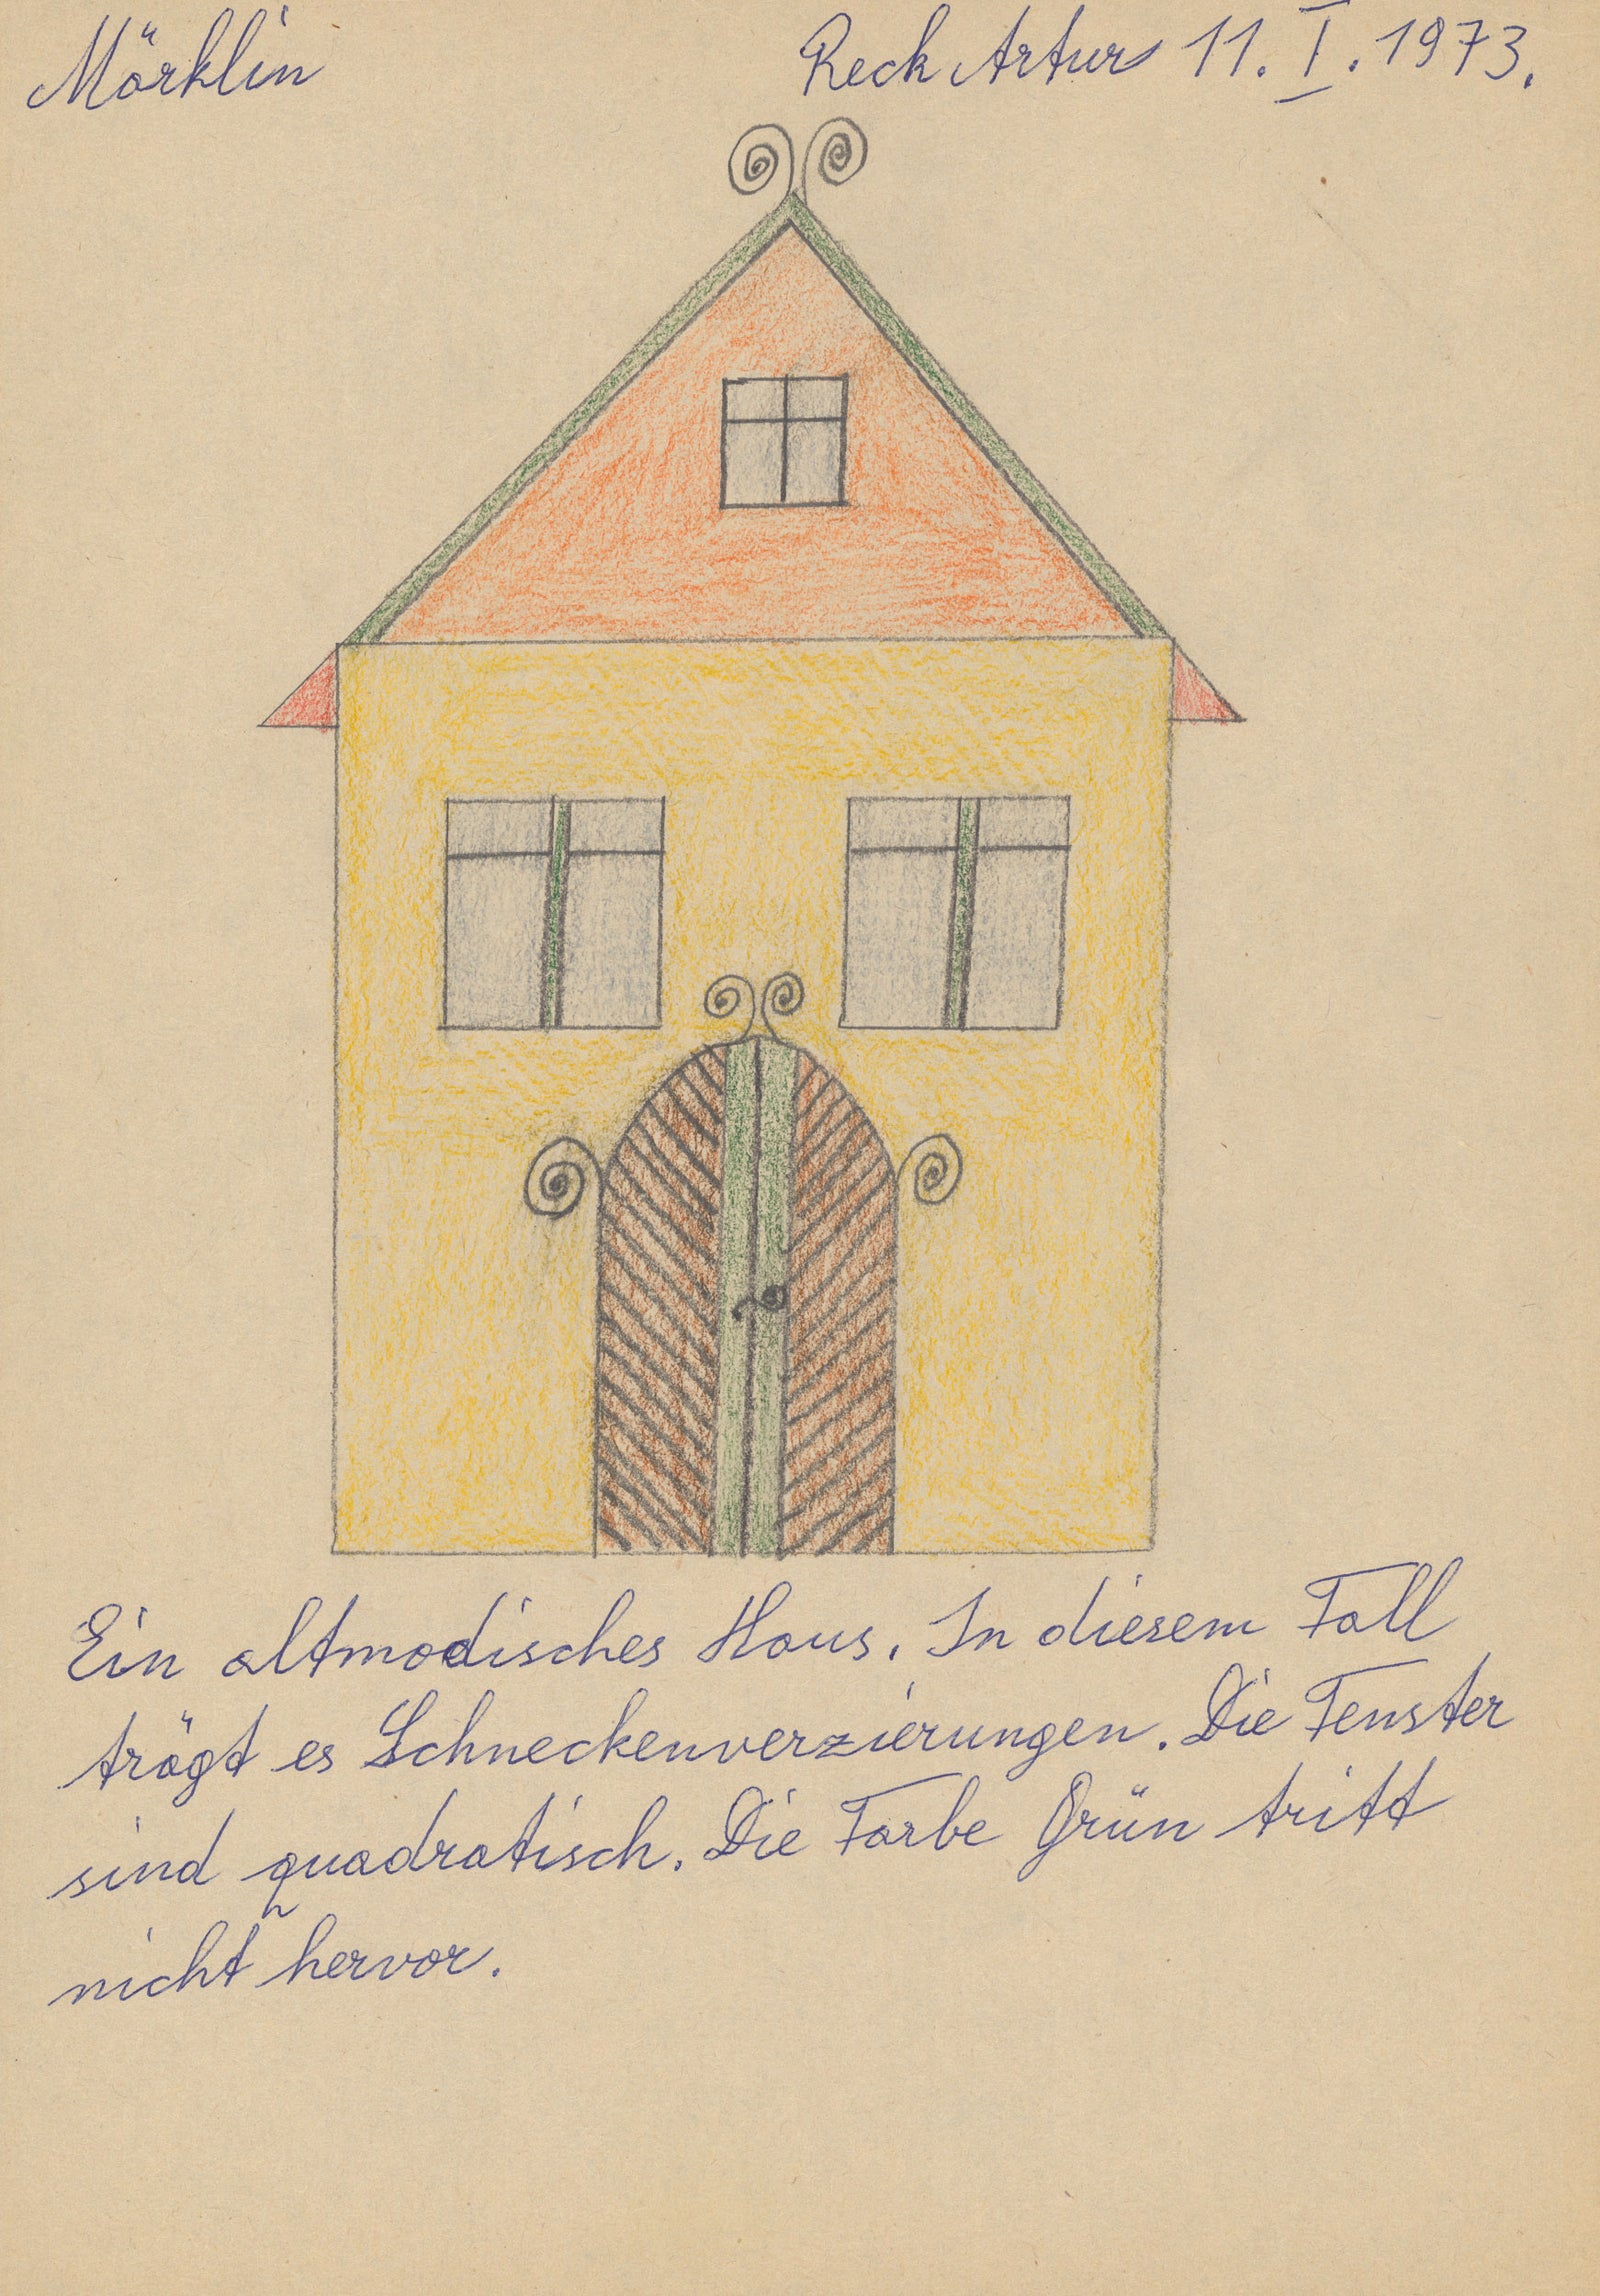 Märklin
Reck Artur 11. I. 1973.
Ein altmodisches Haus. In diesem Fall
trägt es Schneckenverzierungen. Die Fenster
sind quadratisch. Die Farbe Grün tritt
nicht hervor.